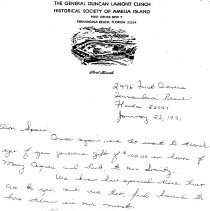 THE GENERAL DUNCAN LAMONT CLINCH
HISTORICAL SOCIETY OF AMELIA ISLAND
POST OFFICE BOX 7
FERNANDINA BEACH, FLORIDA 32034
Fort Clinch
2996 First Avenue
Fernandina Beach
Florida 32034
January 22, 1991
Dear
Once again, we do want to thank
you of your generous gift of $100.00 in honor of
Mary Agnes and to our Society.
We know how special these
are to you, and we too feel honored to
have them in our